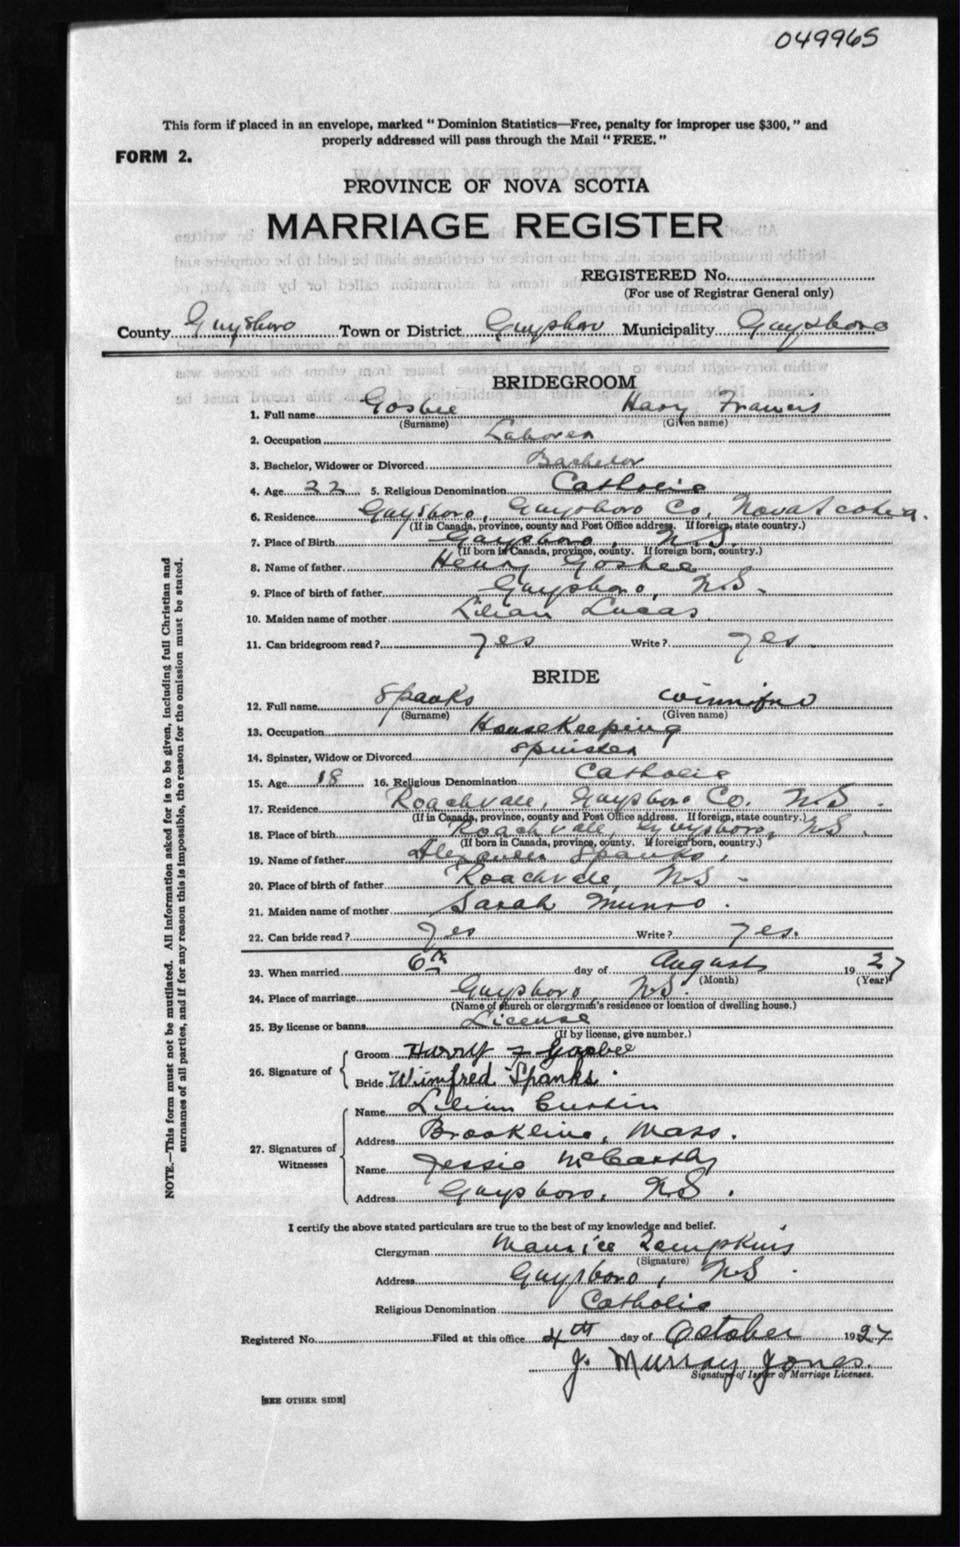 049965
This form if placed in an envelope, marked "Dominion Statistics—Free, penalty for improper use $300," and
properly addressed will pass through the Mail "FREE."
FORM 2.
PROVINCE OF NOVA SCOTIA
MARRIAGE REGISTER
REGISTERED No.
(For use of Registrar General only)
County Guysboro Town or District Guysboro Municipality Guysboro
BRIDEGROOM
1. Full name Gosbee Harry Francis
(Surname) (Given name)
2. Occupation Laborer
3. Bachelor, Widower or Divorced Bachelor
4. Age 22 5. Religious Denomination Catholic
6. Residence Guysboro, Guysboro Co, Nova Scotia.
(If in Canada, province, county and Post Office address. If foreign, state country.)
7. Place of Birth Guysboro, N.S.
(If born in Canada, province, county. If foreign born, country.)
8. Name of father Henry Gosbee
9. Place of birth of father Guysboro, N.S.
10. Maiden name of mother Lilian Lucas
11. Can bridegroom read? yes Write? yes
BRIDE
12. Full name Spanks Winnifred
(Surname) (Given name)
13. Occupation Housekeeping
14. Spinster, Widow or Divorced Spinster
15. Age 18 16. Religious Denomination Catholic
17. Residence Roachvale, Guysboro Co. N.S.
(If in Canada, province, county and Post Office address. If foreign, state country.)
18. Place of birth Roachvale, Guysboro, N.S.
(If born in Canada, province, county. If foreign born, country.)
19. Name of father Alexander Spanks.
20. Place of birth of father Roachvale, N.S.
21. Maiden name of mother Sarah Munro.
22. Can bride read? yes Write? yes.
23. When married 6th day of August 1927
(Month) (Year)
24. Place of marriage Guysboro, N.S.
(Name of church or clergyman's residence or location of dwelling house.)
25. By license or banns License
(If by license, give number.)
26. Signature of
Groom Harry F Gosbee
Bride Winnifred Spanks.
27. Signatures of Witnesses
Name Lilian
Address Brookline, Mass.
Name Jessie McCarthy
Address Guysboro, N.S.
I certify the above stated particulars are true to the best of my knowledge and belief.
Clergyman Maurice Tompkins
(Signature)
Address Guysboro, N.S.
Religious Denomination Catholic
Registered No. Filed at this office 4th day of October 1927
J. Murray Jones.
Signature of Issuer of Marriage Licenses.
[SEE OTHER SIDE]
NOTE.—This form must not be mutilated. All information asked for is to be given, including full Christian and
surnames of all parties, and if for any reason this is impossible, the reason for the omission must be stated.